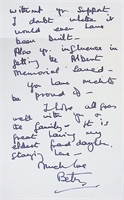 without you support
I doubt whether it
would ever have
been built.
Also your influence in
getting the Albert
Memorial saved —
you have much to
be proud of —
I hope all goes
well with you &
the family. It is
great having my
eldest grand daughter
staying here —
Much love